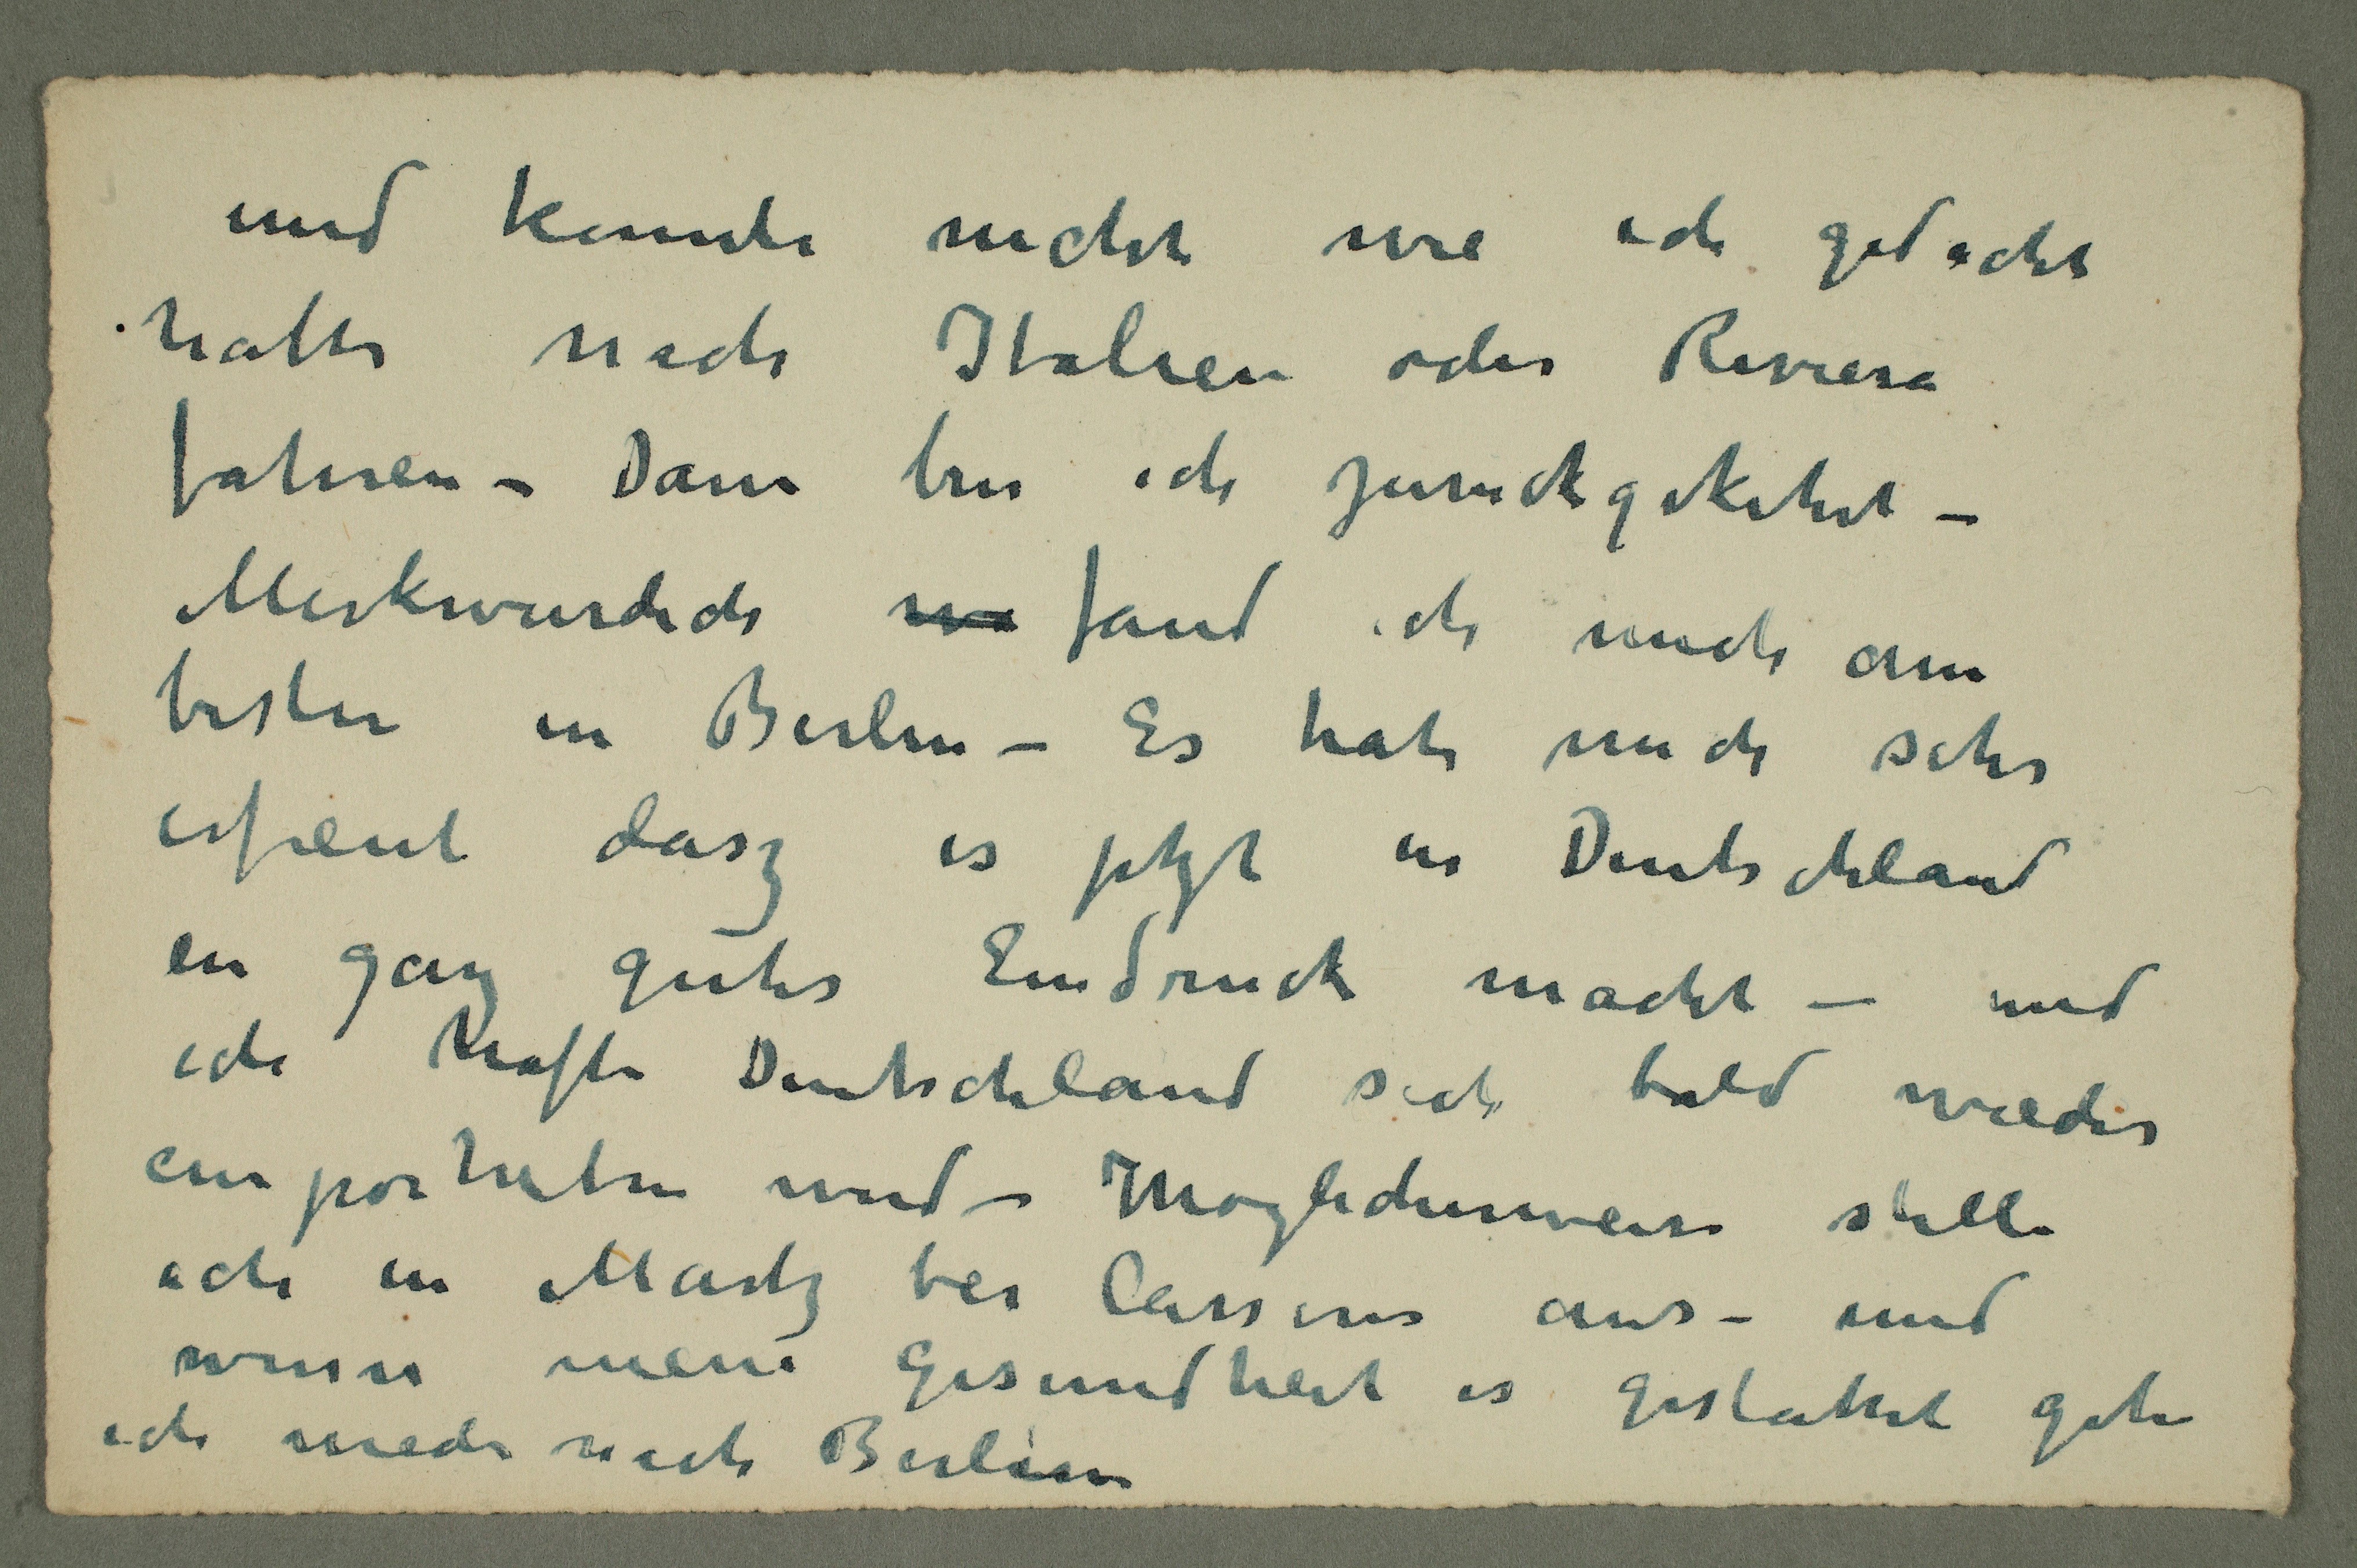 und konnte nicht wie ich gedacht
hatte nach Italien oder Riviera
fahren – Dann bin ich zurückgekehrt –
Merkwurdich fand ich mich am
besten in Berlin – Es hat mich sehr
erfreut dasz es jetzt in Deutschland
ein ganz guter Eindruck macht – und
ich hoffe Deutschland sich bald wieder
emporheben wird – Moglicherweise stelle
ich in Martz bei Cassirer aus – und
wenn meine Gesundheit es gestattet gehe
ich wieder nach Berlin